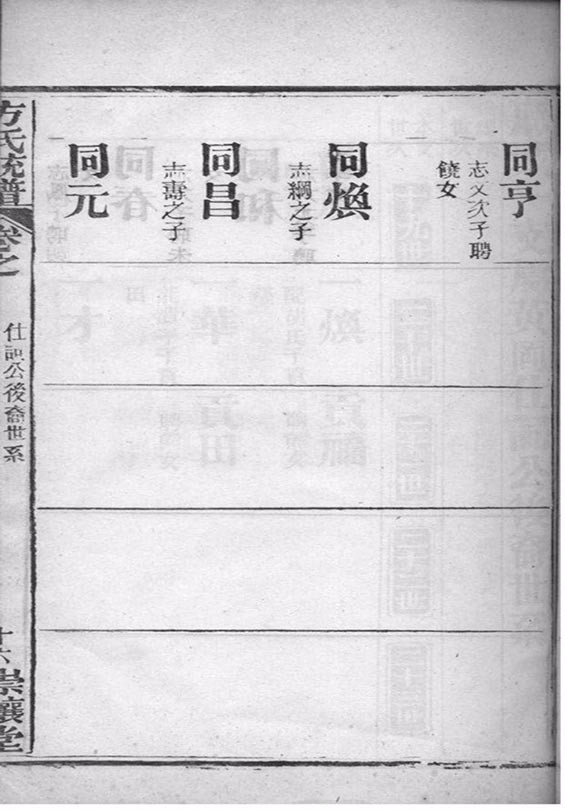 同亨
志文次子聘
饒女
同煥
志綱之子
同昌
志壽之子
同元
方氏統譜
卷之一
仕訓公後裔世系
十六
崇讓堂